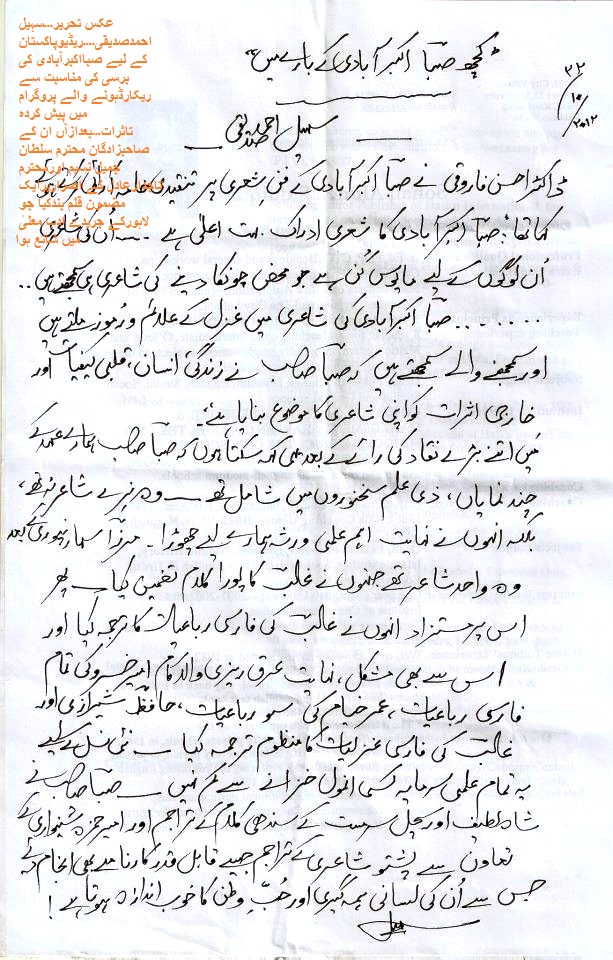 عکس تحریر...سہیل
احمدصدیقی...ریڈیوپاکستان
کے لیے صبااکبرآبادی کی
برسی کی مناسبت سے
ریکارڈہونے والے پروگرام
میں پیش کردہ
تاثرات...بعدازآں ان کے
صاحبزادگان محترم سلطان
جمیل نسیم اورمحترم
مضمون قلم بندکیا جو
لاہورکے
میں شائع ہوا
"کچھ صباؔ اکبر آبادی کے بارے میں"
۳۲
۱۰
۲۰۱۲
سہیل احمد صدیقی
ڈاکٹر احسن فاروقی نے صباؔ اکبر آبادی کے فنِ شعری پر تنقیدی
کہا تھا: صباؔ اکبر آبادی کا شعری ادراک بہت اعلٰی ہے ـــ اُن کی شاعری
ان لوگوں کے لیے مایوس کُن ہے جو محض چونکا دینے کی شاعری ہی سمجھتے ہیں ..
....... صباؔ اکبر آبادی کی شاعری میں غزل کے علائم و رموز ملتے ہیں
اور سمجھنے والے سمجھتے ہیں کہ صباؔ صاحب نے زندگی، انسان، قلبی کیفیات اور
خارجی اثرات کو اپنی شاعری کا موضوع بنایا ہے"۔
میں اتنے بڑے نقاد کی رائے کے بعد یہی کہہ سکتا ہوں کہ صباؔ صاحب ہمارے عہد کے
چند نمایاں، ذی علم سخنوروں میں شامل تھے ـــ وہ نِرے شاعر نہ تھے،
بلکہ انہوں نے نہایت اہم علمی ورثہ ہمارے لیے چھوڑا۔ مرزا سہارنپوری کے بعد
وہ واحد شاعر تھے جنہوں نے غالبؔ کا پورا کلام تضمین کیا ـــ پھر
اس پر مستزاد انہوں نے غالبؔ کی فارسی رباعیات کا ترجمہ کیا اور
اس سے بھی مشکل، نہایت عرق ریزی والا کام امیر خسرو کی تمام
فارسی رباعیات، عمر خیام کی سو رباعیات، حافظؔ شیرازی اور
غالبؔ کی فارسی غزلیات کا منظوم ترجمہ کیا ـــ نئی نسل کے لیے
یہ تمام علمی سرمایہ کسی انمول خزانے سے کم نہیں ـــ صباؔ صاحب نے
شاہ لطیف اور سچل سرمست کے سندھی کلام کے تراجم اور امیر حمزہ شنواری کے
تعاون سے پشتو شاعری کے تراجم جیسے قابلِ قدر کارنامے بھی انجام دیے
جس سے اُن کی لسانی ہمہ گیری اور حُبِّ وطن کا خوب اندازہ ہوتا ہے !